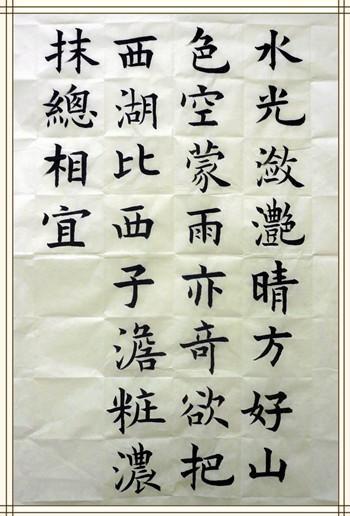 水光瀲灔晴方好山
色空蒙雨亦奇欲把
西湖比西子澹粧濃
抹總相宜